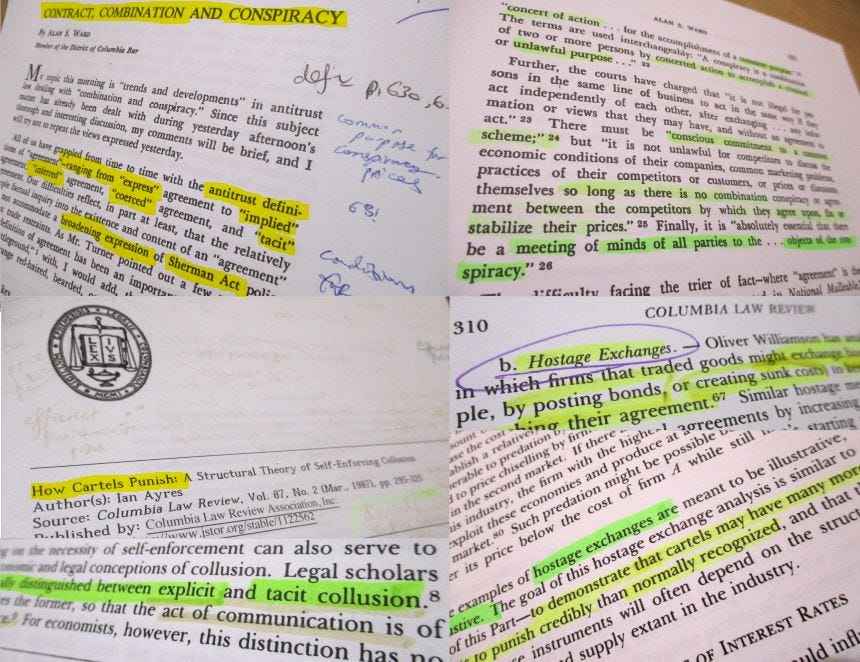 CONTRACT, COMBINATION AND CONSPIRACY
By ALAN S. WARD
Member of the District of Columbia Bar
My topic this morning is "trends and developments" in antitrust
law dealing with "combination and conspiracy." Since this subject
matter has already been dealt with during yesterday afternoon's
thorough and interesting discussion, my comments will be brief, and I
will try not to repeat the views expressed yesterday.
All of us have grappled from time to time with the antitrust defini-
tions of "agreement"—ranging from "express" agreement to "implied"
agreement, "inferred" agreement, "coerced" agreement, and "tacit"
agreement. Our difficulties reflect, in part at least, that the relatively
factual inquiry into the existence and content of an "agreement"
not accommodate a broadening expression of Sherman Act
trade restraints. As Mr. Turner pointed out a few
definition of agreement has been an important
with, I would add, the
red-haired, bearded,
p. 630, 6
common
purpose for
conspiracy
prices
631
ALAN S. WARD
"concert of action . . . for the accomplishment of a common purpose."
The terms are used interchangeably: "A conspiracy is a combination
of two or more persons by concerted action to accomplish a criminal
or unlawful purpose . . ." 22
Further, the courts have charged that "it is not illegal for
sons in the same line of business to act in the same way if they
act independently of each other, after exchanging . . . any infor-
mation or views that they may have, and without an agreement to
act." 23 There must be "conscious commitment to a common
scheme;" 24 but "it is not unlawful for competitors to discuss
economic conditions of their companies, common marketing problems,
practices of their competitors or customers, or prices or discounts
themselves so long as there is no combination conspiracy or agree-
ment between the competitors by which they agree upon, fix or
stabilize their prices." 25 Finally, it is "absolutely essential that there
be a meeting of minds of all parties to the . . . objects of the con-
spiracy." 26
difficulty facing the trier of fact—where "agreement" is
in National Malleable
LEX IVS
MCMI
efficient
punishments
How Cartels Punish: A Structural Theory of Self-Enforcing Collusion
Author(s): Ian Ayres
Source: Columbia Law Review, Vol. 87, No. 2 (Mar., 1987), pp. 295-325
Published by: Columbia Law Review Association, Inc.
www.jstor.org/stable/1122562
310
COLUMBIA LAW REVIEW
b. Hostage Exchanges. — Oliver Williamson has
in which firms that traded goods might exchange
ple, by posting bonds, or creating sunk costs) to
their agreement.67 Similar hostage
agreements by increasing
starting
on the necessity of self-enforcement can also serve to
and legal conceptions of collusion. Legal scholars
distinguished between explicit and tacit collusion.8
the former, so that the act of communication is of
For economists, however, this distinction has no
to predation by
to price chiselling by firm. If there
in the second market.
industry, the firm with the
exploit these economies and produce at a
market.80 Such predation might be possible
its price below the cost of firm A while still
examples of hostage exchanges are meant to be illustrative,
The goal of this hostage exchange analysis is similar to
of this Part—to demonstrate that cartels may have many more
to punish credibly than normally recognized, and that
instruments will often depend on the
supply extant in the industry.
OF INTEREST RATES